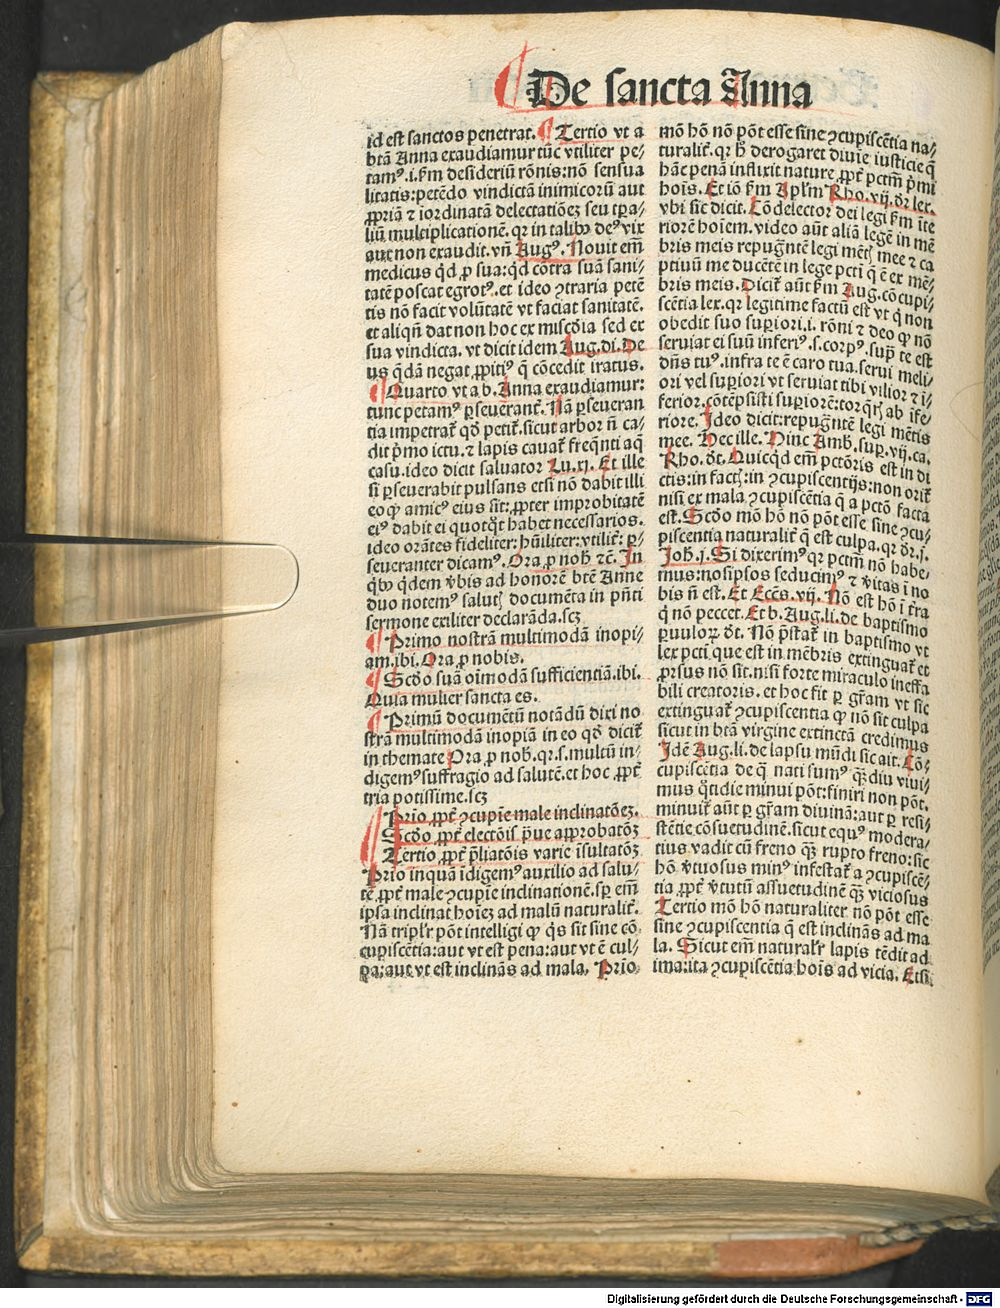 De sancta Anna
id est sanctos penetrat. ¶ Tertio vt a
btā Anna exaudiamur tūc vtiliter pe-
tamꝰ.i.ẜm desideriū rōnis:nō sensua
litatis:petēdo vindictā inimicorū aut
ꝓpriā ⁊ iordinatā delectatiōeꝫ seu tꝑa-
liū multiplicationē. qꝛ in talibꝰ deꝰ vix
aut non exaudit. vn̄ Augꝰ. Nouit em̄
medicus qd̄ ꝓ sua: qd̄ cōtra suā sani-
tatē poscat egrotꝰ. et ideo ꝯtraria petē
tis nō facit volūtatē vt faciat sanitatē.
et aliqn̄ dat non hoc ex misc̄dia sed ex
sua vindicta. vt dicit idem Aug. di. De
us q̄dā negat ꝓpitiꝰ q̄ cōcedit iratus.
¶ Quarto vt a b. Anna exaudiamur:
tunc petamꝰ ꝑseuerant̄. Nā ꝑseueran
tia impetrat̄ qd̄ petit̄. sicut arbor n̄ ca-
dit p̄mo ictu. ⁊ lapis cauat̄ freq̄nti aq̄
casu. ideo dicit saluator Lu. xj. Et ille
si ꝑseuerabit pulsans etsi nō dabit illi
eo ꝙ amicꝰ eius sit: ꝓpter improbitatē
eiꝰ dabit ei quotq̄t habet necessarios.
ideo orātes fideliter: hūiliter: vtilit̄: ꝑ-
seueranter dicamꝰ. Ora ꝓ nob̄ ⁊c̄. In
qⁱbꝰ q̄dem v̄bis ad honorē btē Anne
duo notemꝰ salutꝭ documēta in pn̄ti
sermone exiliter declarāda. scꝫ
¶ Primo nostrā multimodā inopi-
am. ibi. Ora ꝓ nobis.
¶ Sc̄do suā oīmodā sufficientiā. ibi.
Quia mulier sancta es.
¶ Primū documētū notādū dixi no
strā multimodā inopiā in eo qd̄ dicit̄
in themate Ora ꝓ nob̄. qꝛ. s. multū in-
digemꝰ suffragio ad salutē. et hoc ꝓpt̄
tria potissime. scꝫ
Prīo ꝓpt̄ ꝯcupīe male inclinatōeꝫ.
Sc̄do ꝓpt̄ electōis p̄ue approbatōꝫ
Tertio ꝓpt̄ p̄liatōis varie īsultatōꝫ
Prīo inquā īdigemꝰ auxilio ad salu-
tē ꝓpt̄ male ꝯcupīe inclinationē. sꝑ em̄
ipsa inclinat hoīeꝫ ad malū naturalit̄.
Nā triplr̄ pōt intelligi ꝙ qⁱs sit sine cō-
cupiscētia: aut vt est pena: aut vt ē cul-
pa: aut vt est inclinās ad mala. Prīo
mō hō nō pōt esse sine ꝯcupiscētia na-
turalit̄. qꝛ h̄ derogaret diuīe iusticie q̄
hāc penā inflixit nature ꝓpt̄ pctm̄ p̄mi
hoīs. Et iō ẜm Apl̄m Rho. vij. dr̄ lex.
vbi sic dicit. Cōdelector dei legi ẜm īte
riorē hoīem. video aūt aliā legē in mē
bris meis repugn̄tē legi mētꝭ mee ⁊ ca
ptiuū me ducētē in lege pcti q̄ ē ex mē-
bris meis. Dicit̄ aūt ẜm Aug. cōcupi-
scētia lex. qꝛ legitime factū est vt qⁱ non
obedit suo superiori. i. rōni ⁊ deo ꝙ nō
seruiat ei suū inferiꝰ. s. corpꝰ. supͣ te est
dn̄s tuꝰ. infra te ē caro tua. serui meli-
ori vel superiori vt seruiat tibi vilior ⁊ ī-
ferior. cōtēpsisti superiorē: torq̄rꝭ ab īfe-
riore. Ideo dicit: repugn̄tē legi mētis
mee. Hec ille. Hinc Amb. sup. vij. ca.
Rho. dt̄. Quicqd̄ em̄ pctōris est in di
ctis: in factꝭ: in ꝯcupiscentijs: non orit̄
nisi ex mala ꝯcupiscētia q̄ a pctō facta
est. Sc̄do mō hō nō pōt esse sine ꝯcu-
piscentia naturalit̄ q̄ est culpa. qꝛ dr̄. j.
Joh̄. j. Si dixerimꝰ qꝛ pctm̄ nō habe-
mus: nosip̄sos seducimꝰ ⁊ v̄itas ī no
bis n̄ est. Et Eccēs. vij. Nō est hō ī t̄ra
qⁱ nō peccet. Et b. Aug. li. de baptismo
ꝑuuloꝝ dt̄. Nō p̄stat̄ in baptismo vt
lex pcti que est in mēbris extinguat̄ et
ꝓrsus nō sit. nisi forte miraculo ineffa
bili creatoris. et hoc fit ꝑ gr̄am vt sic
extinguat̄ ꝯcupiscentia ꝙ nō sit culpa
sicut in btā virgine extinctā credimus
Idē Aug. li. de lapsu mūdi sic ait. Cō-
cupiscētia de q̄ nati sumꝰ qͣꝫdiu viui-
mus qͦtidie minui pōt: finiri non pōt.
minuit̄ aūt ꝑ gr̄am diuinā: aut ꝑ resi-
stētie cōsuetudinē. sicut equꝰ modera-
tius vadit cū freno qͣꝫ rupto freno: sic
hō v̄tuosus minꝰ infestat̄ a ꝯcupiscē-
tia ꝓpt̄ v̄tutū assuetudinē qͣꝫ viciosus
Tertio mō hō naturaliter nō pōt esse
sine ꝯcupiscentia q̄ est inclinās ad ma
la. Sicut em̄ naturalr̄ lapis tēdit ad
ima: ita ꝯcupiscētia hoīs ad vicia. Etsi
Digitalisierung gefördert durch die Deutsche Forschungsgemeinschaft - DFG